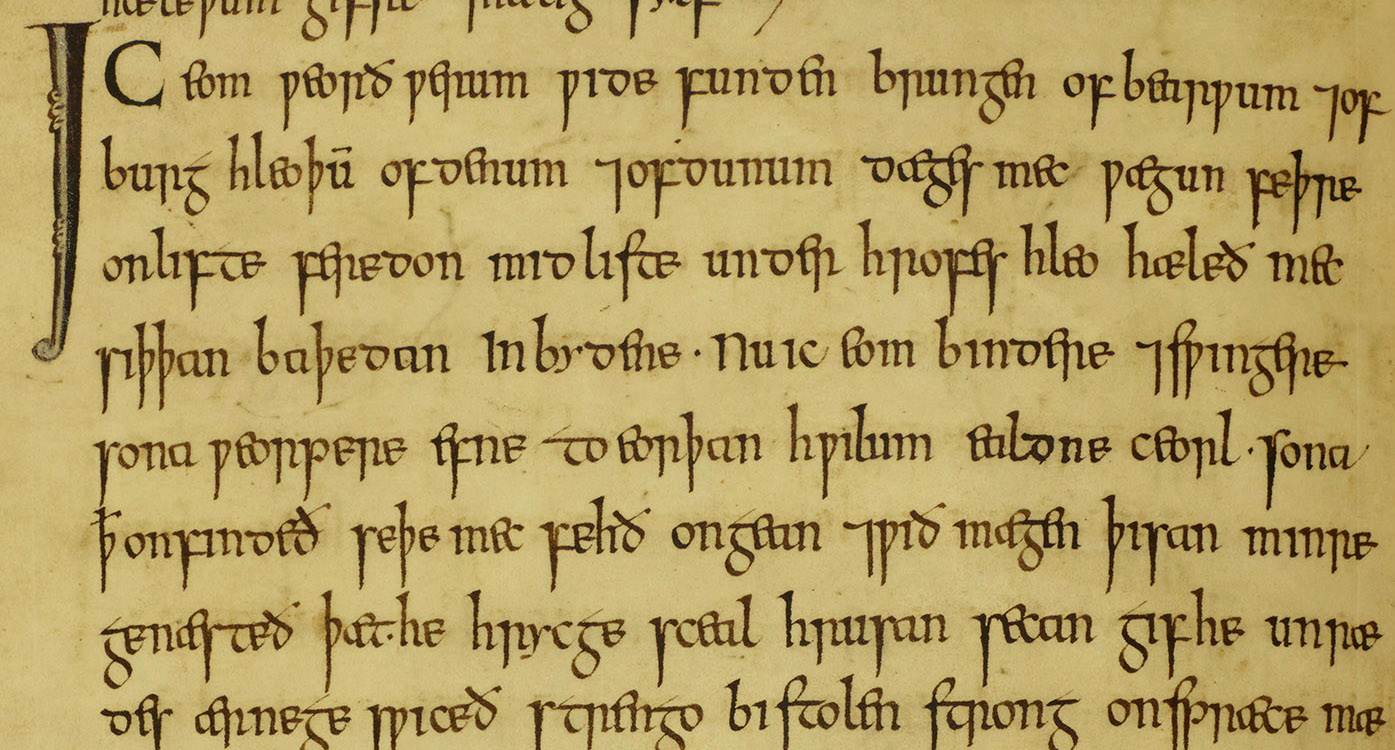 IC eom ƿeorð ƿerum ƿide funden brungen of bearƿum ⁊ of
burg hleoþū of denum ⁊ of dunum dæges mec ƿægun feþre
on lifte feredon mid liste under hrofes hleo hæleð mec
siþþan baþedan in bydene · Nu ic eom bindere ⁊ sƿingere
sona ƿeorpere efne to eorþan hƿilum ealdne ceorl · sona
ꝥ onfindeð se þe mec fehð ongean ⁊ ƿið mægen þisan minre
genæsteð þæt he hrycge sceal hrusan secan gif he unræ
des ær ne gesƿiceð strengo bistolen strong on spræce mæ